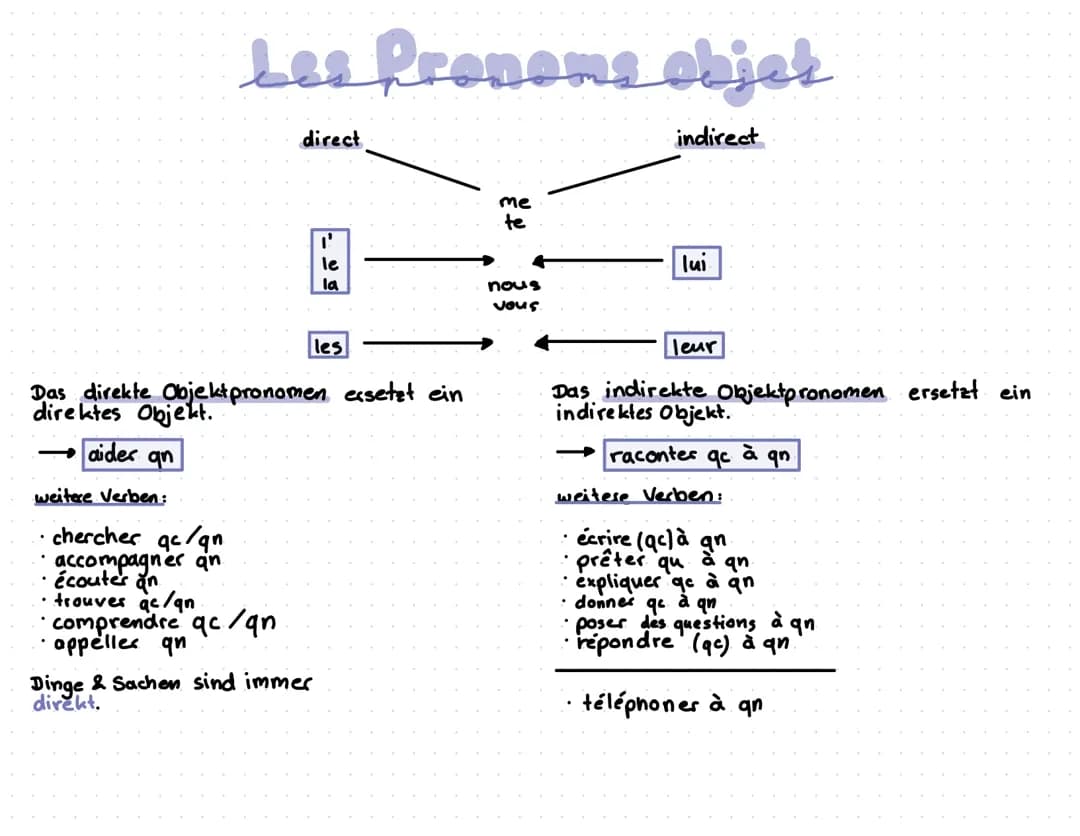 Les Pronoms objet
les pronoms objet
direct
indirect
me
te
l'
le
la
lui
nous
vous
les
leur
Das direkte Objektpronomen ersetzt ein
direktes Objekt.
→ aider qn
weitere Verben:
· chercher qc/qn
· accompagner qn
· écouter qn
· trouver qc/qn
· comprendre qc/qn
· appeller qn
Dinge & Sachen sind immer
direkt.
Das indirekte Objektpronomen ersetzt ein
indirektes Objekt.
→ raconter qc à qn
weitere Verben:
· écrire (qc) à qn
· prêter qu à qn
· expliquer qc à qn
· donner qc à qn
· poser des questions à qn
· répondre (qc) à qn
· téléphoner à qn